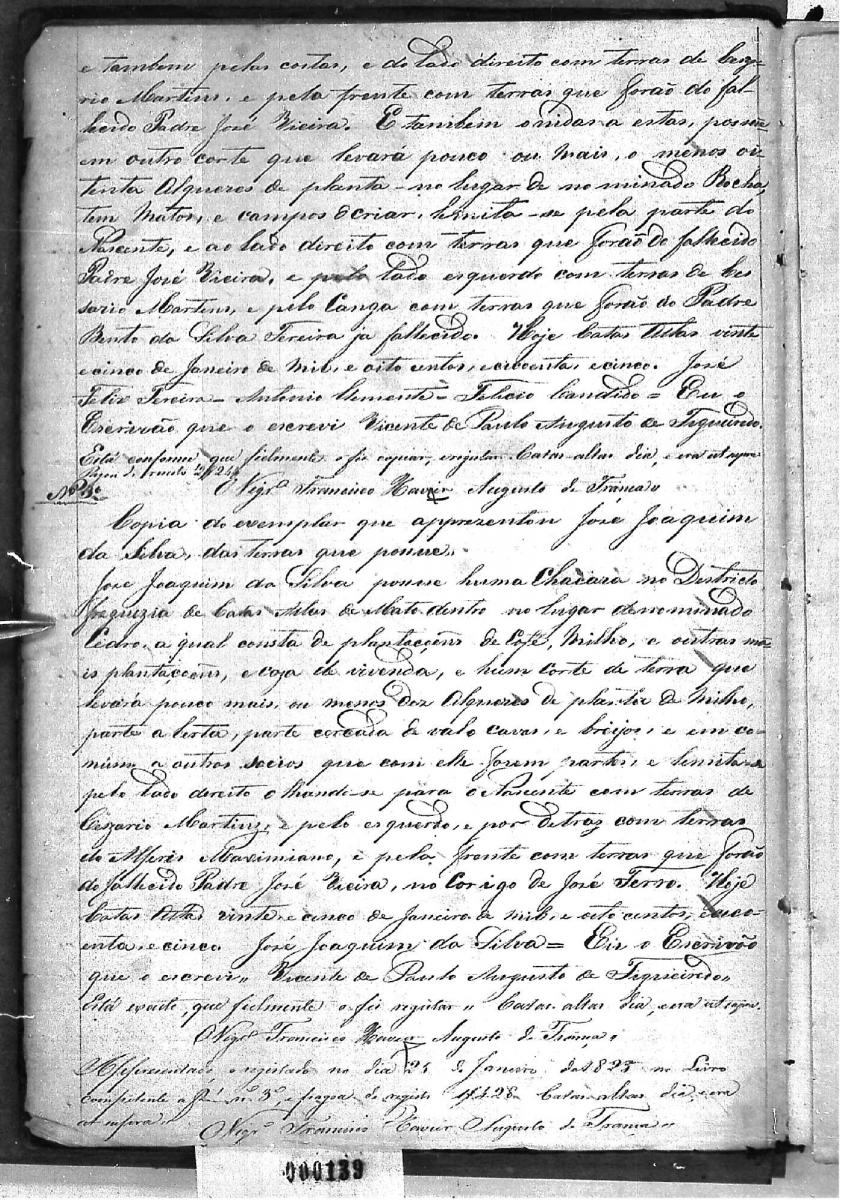 e tambem pelas costas, e do lado direito com terras de Ceza-
rio Martins, e pela frente com terras que forão do fal-
lecido Padre José Vieira. E tambem onidas a estas, possue
em outro corte que levará pouco ou mais, o menos oi-
tenta Alqueres de planta - no lugar de nominado Rocha,
tem Matos, e campos de criar, lemita-se pela parte do
Nascente, e ao lado direito com terras que forão do fallecido
Padre José Vieira, e pelo lado esquerdo com terras de Ce-
sario Martins, e pelo Canga com terras que forão do Padre
Bento da Silva Pereira ja fallecido. Hoje Catas Altas vinte
e cinco de Janeiro de Mil, e oito centos, e cincoenta, e cinco. José
Felix Pereira = Antonio Clemente = Felicio Candido = Eu o
Escrivão que o escrevi Vicente de Paulo Augusto de Figueiredo.
Está conforme, que fielmente o fis copiar, e registar. Catas-altas dia, e era ut supra
O Vigr.º Francisco Xavier Augusto de França
Copia do exemplar que apprezentou José Joaquim
da Silva, das terras que possue.
José Joaquim da Silva possue huma Chacara no Destricto
Freguezia de Catas Altas de Mato dentro no lugar denominado
Cedro, a qual consta de plantaçoens de Cafe, Milho, e outras ma-
is plantaçoens, e caza de vivenda, e hum corte de terra que
levará pouco mais, ou menos dez Alqueres de planta de Milho,
parte aberta, parte cercada de valo cavas, e breijos, e em co-
mum a outros socios que com elle forem partes, e lemita-se
pelo lado direito olhando-se para o Nascente com terras de
Cezario Martins, e pelo esquerdo, e por detraz com terras
do Alferes Maximiano, e pela frente com terras que forão
do fallecido Padre José Vieira, no Corigo de José Ferro. Hoje
Catas Altas vinte e cinco de Janeiro de mil, e oito centos, e cinco-
enta, e cinco. José Joaquim da Silva = Eu o Escrivão
que o escrevi,, Vicente de Paulo Augusto de Figueiredo,,
Está exacto, que fielmente o fis registar,, Catas-altas dia, e era ut supra.
O Vigr.º Francisco Xavier Augusto de França,,
Appresentado, e registado no dia 25 de Janeiro de 1855 no Livro
competente a n.º 5º, e pagou de registo Catas-altas dia, e era
ut supra,, O Vigr.º Francisco Xavier Augusto de França,,
000139